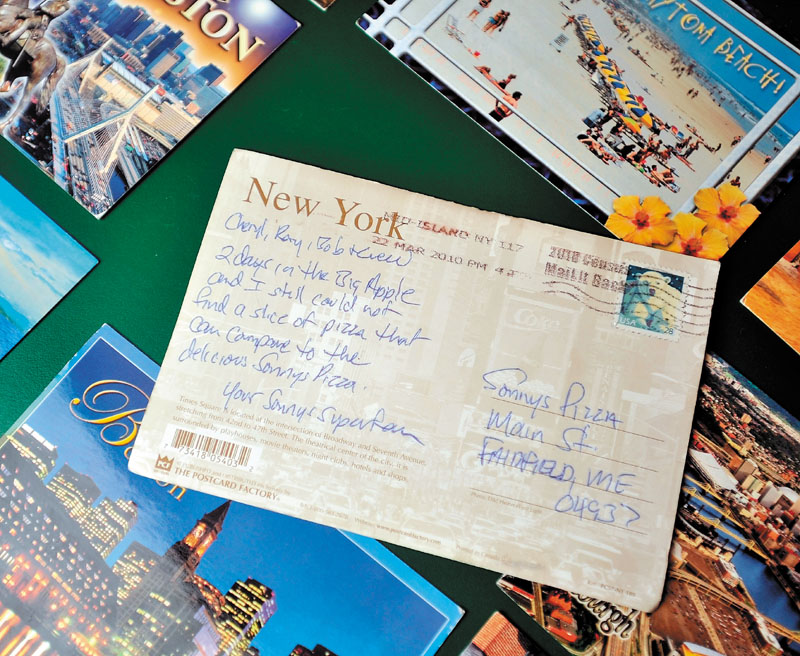 STON
YTONA BEACH!
New York
MID-ISLAND NY 117
22 MAR 2010 PM 4
2010 Census
Mail It Back
Cheryl, Rory, Bob & crew
2 days in the Big Apple
and I still could not
find a slice of pizza that
can compare to the
delicious Sonnys Pizza.
Your Sonnys Superfan
Sonnys Pizza
Main St.
Fairfield, ME
04937
Times Square is located at the intersection of Broadway and Seventh Avenue,
stretching from 42nd to 47th Street. The theatrical center of the city, it is
surrounded by playhouses, movie theaters, night clubs, hotels and shops.
73418 05403 2
THE POSTCARD FACTORY
Coke